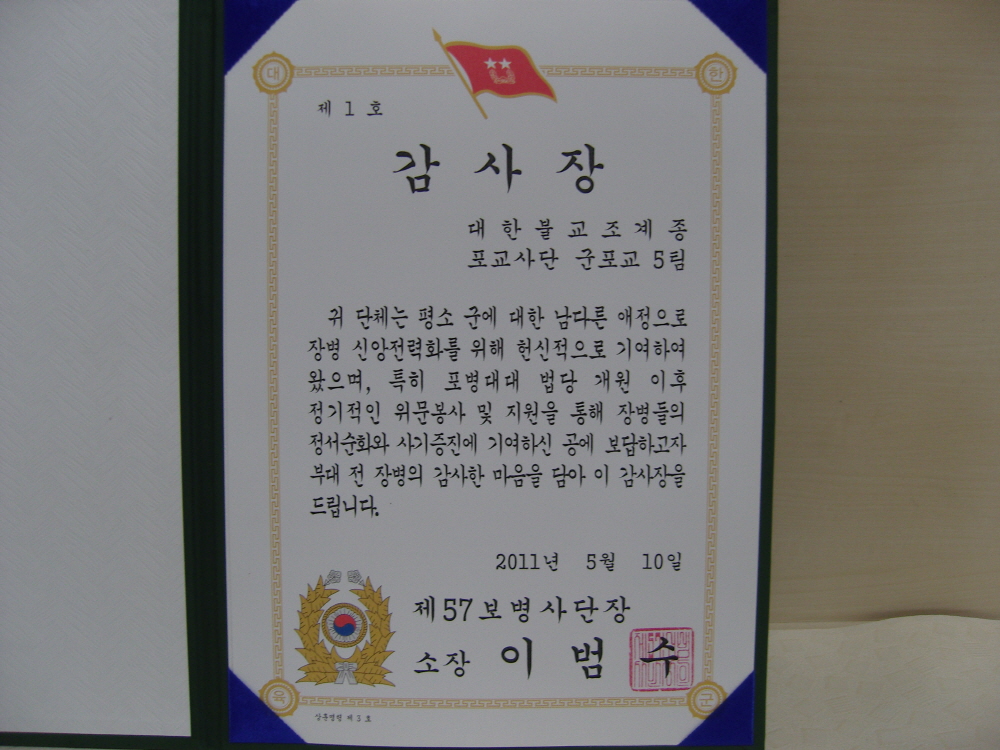 대 한
제 1 호
감 사 장
대 한 불 교 조 계 종
포교사단 군포교 5팀
귀 단체는 평소 군에 대한 남다른 애정으로
장병 신앙전력화를 위해 헌신적으로 기여하여
왔으며, 특히 포병대대 법당 개원 이후
정기적인 위문봉사 및 지원을 통해 장병들의
정서순화와 사기증진에 기여하신 공에 보답하고자
부대 전 장병의 감사한 마음을 담아 이 감사장을
드립니다.
2011년 5월 10일
제57보병사단장
소장 이 범 수
육 군
상훈명령 제 3 호